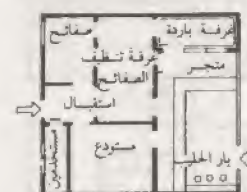 غرفة باردة
صفائح
غرفة تنظيف
الصفائح
متجر
استقبال
مستودع
بار الحليب
مستخدمين